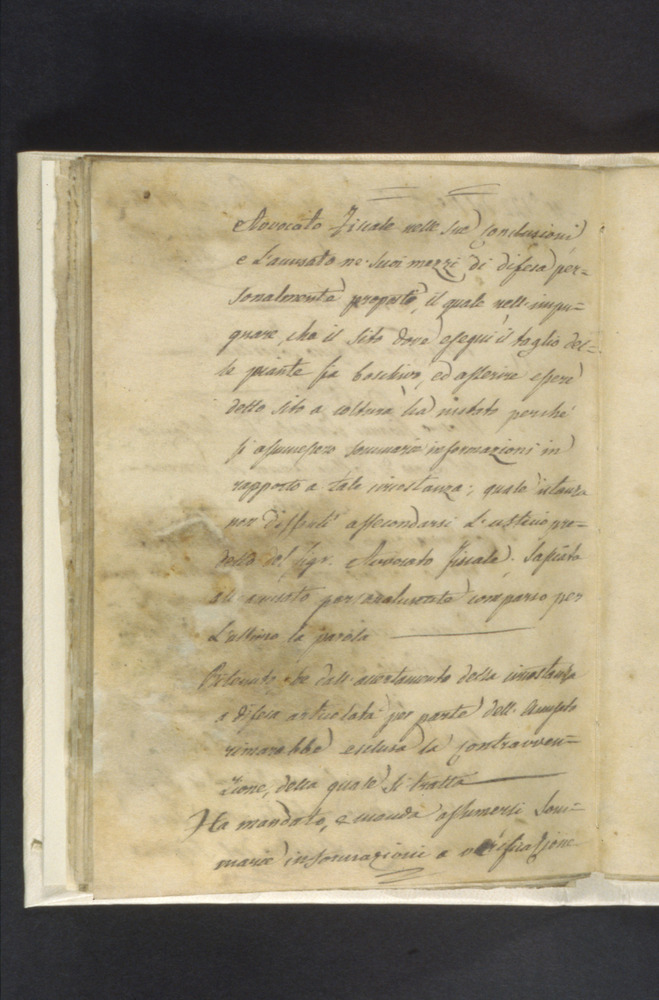 Avvocato Fiscale nelle sue Conclusioni,
e L'accusato ne' suoi mezzi di difesa per=
sonalmente proposti, il quale nell'impu=
gnare, che il sito dove eseguì il taglio del=
le piante sia boschivo, ed asserire essere
detto sito a coltura ha instato perché
si assumessero sommarie informazioni in
rapporto a tale circostanza; quale instanza
non dissentì assecondarsi L'
del Sigr. Avvocato Fiscale.
all'accusato personalmente comparso per
L'ultimo la parola
Rilevato che dall'accertamento della circostanza
a difesa articolata per parte dell'
rimarrebbe esclusa la Contravven=
zione, della quale si tratta
Ha mandato, e manda assumersi Som=
marie informazioni a verificazione